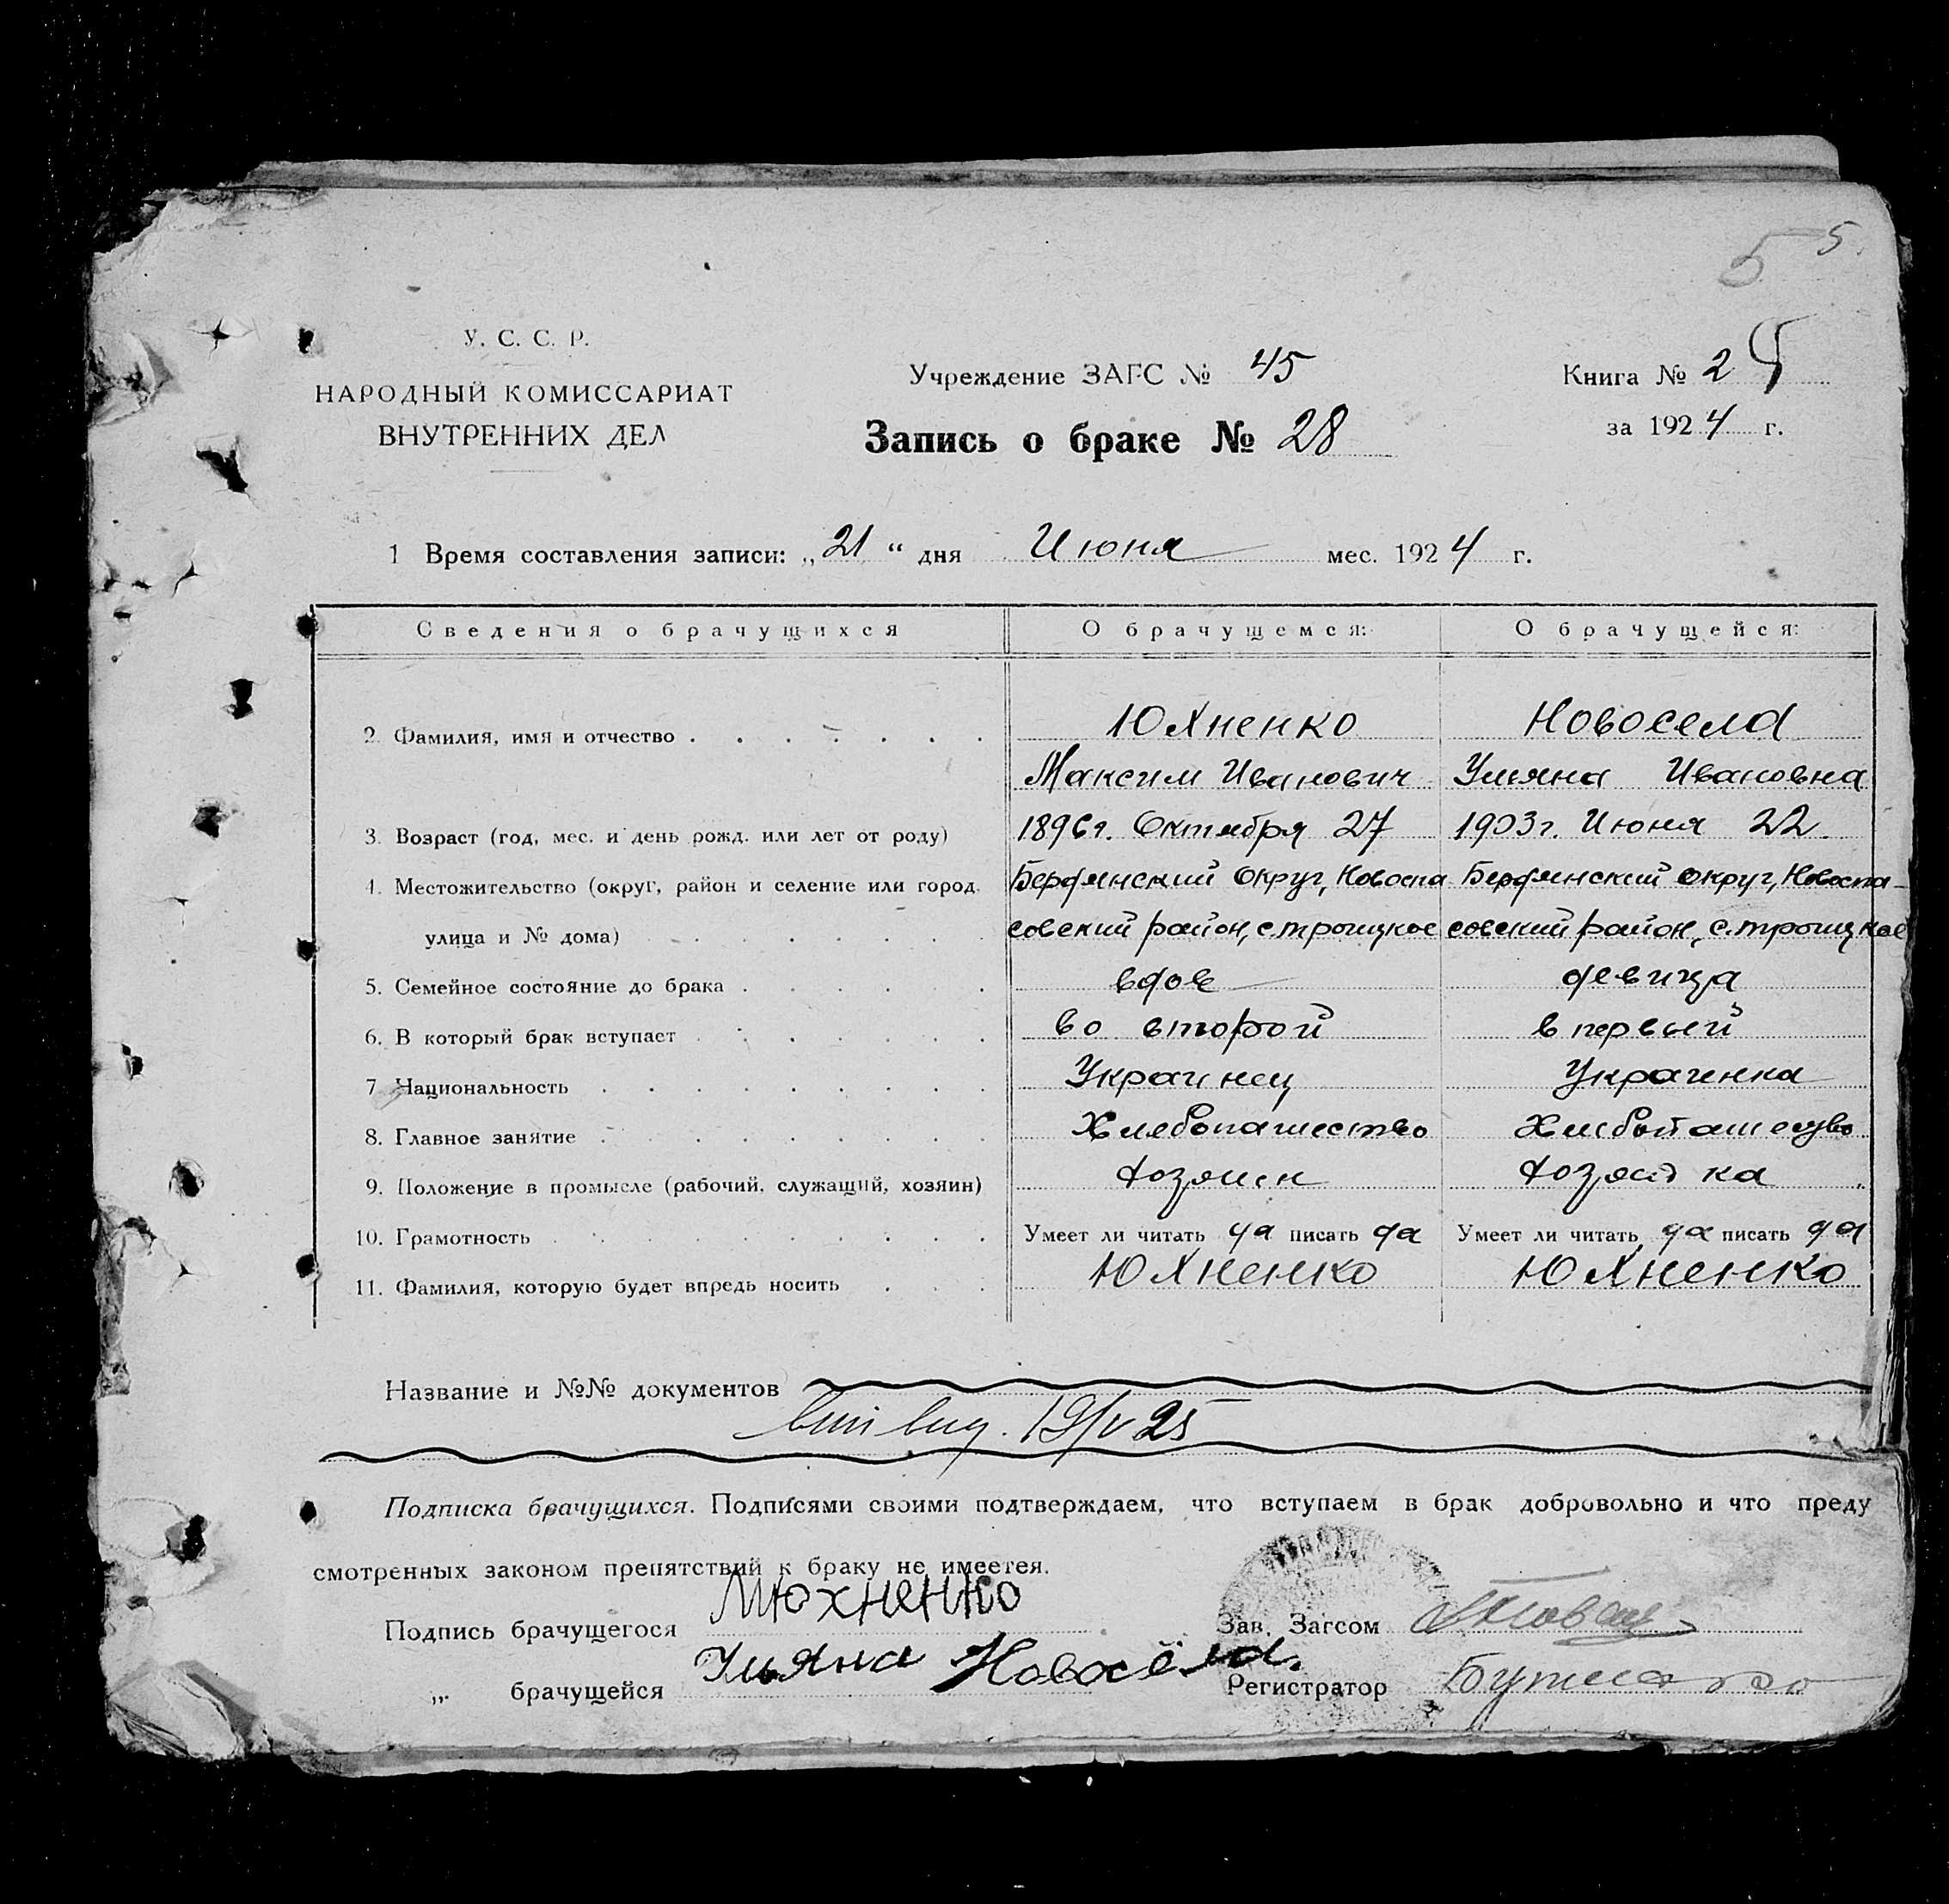 5 5.
У. С. С. Р.
НАРОДНЫЙ КОМИССАРИАТ
ВНУТРЕННИХ ДЕЛ
Учреждение ЗАГС № 45
Запись о браке № 28
Книга № 2
за 1924 г.
1 Время составления записи: „21“ дня Июня мес. 1924 г.
Сведения о брачущихся О брачущемся: О брачущейся:
2. Фамилия, имя и отчество Юхненко Новосела
Максим Иванович Уляна Ивановна
3. Возраст (год, мес. и день рожд. или лет от роду) 1896г. Октября 27 1903г. Июня 22
4. Местожительство (округ, район и селение или город. Бердянский Округ, Новоспа Бердянский округ, Новоспа-
улица и № дома) совский район, с. троицкое совский район, с. троицкое
5. Семейное состояние до брака вдов девица
6. В который брак вступает во второй в первый
7. Национальность Украинец Украинка
8. Главное занятие Хлебопашество
9. Положение в промысле (рабочий, служащий, хозяин) хозяин хозяйка
10. Грамотность Умеет ли читать да писать да Умеет ли читать да писать да
11. Фамилия, которую будет впредь носить Юхненко Юхненко
Название и №№ документов
19/V 25
Подписка брачущихся. Подписями своими подтверждаем, что вступаем в брак добровольно и что преду
смотренных законом препятствий к браку не имеется.
Подпись брачущегося МЮхненко Зав. Загсом
„ брачущейся Уляна Новосёла. Регистратор